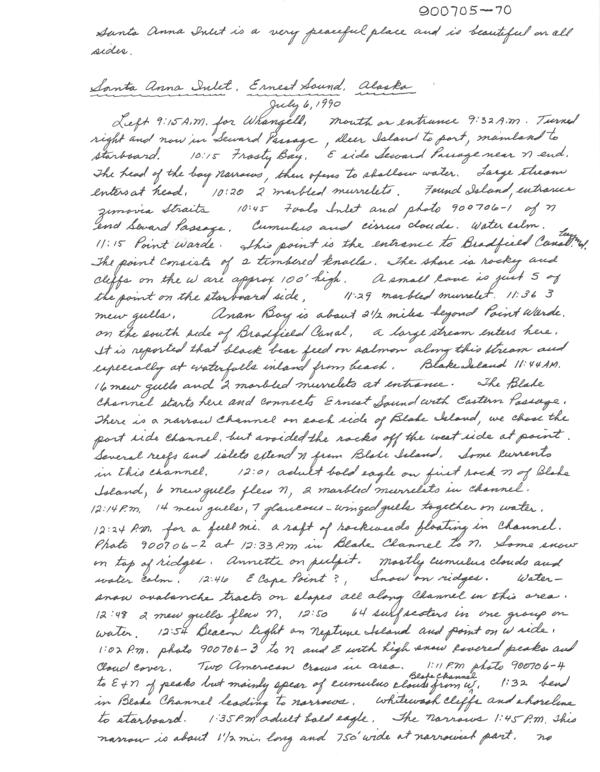 900705-70
Santa Anna Inlet is a very peaceful place and is beautiful on all
sides.
Santa Anna Inlet, Ernest Sound, Alaska
July 6, 1990
Left 9:15 A.M. for Wrangell. Mouth or entrance 9:32 A.M. Turned
right and now in Seward Passage, Deer Island to port, mainland to
starboard. 10:15 Frosty Bay. E side Seward Passage near N end.
The head of the bay narrows, then opens to shallow water. Large stream
enters at head. 10:20 2 marbled murrelets. Found Island, entrance
Zimovia Straits 10:45 Fools Inlet and photo 900706-1 of N
end Seward Passage. Cumulus and cirrus clouds. Water calm.
11:15 Point Warde. This point is the entrance to Bradfield Canal
The point consists of 2 timbered knolls. The shore is rocky and
cliffs on the W are approx 100' high. A small cove is just S of
the point on the starboard side, 11:29 marbled murrelet. 11:36 3
mew gulls. Anan Bay is about 2 1/2 miles beyond Point Warde.
on the south side of Bradfield Canal, a large stream enters here.
It is reported that black bear feed on salmon along this stream and
especially at waterfalls inland from beach. Blake Island 11:44 AM.
16 mew gulls and 2 marbled murrelets at entrance. The Blake
Channel starts here and connects Ernest Sound with Eastern Passage.
There is a narrow channel on each side of Blake Island, we chose the
port side channel, but avoided the rocks off the west side at point.
Several reefs and islets extend N from Blake Island. Some currents
in this channel. 12:01 adult bald eagle on first rock N of Blake
Island, 6 mew gulls flew N, 2 marbled murrelets in channel.
12:14 P.M. 14 mew gulls, 7 glaucous-winged gulls together on water.
12:24 P.M. for a full mi. a raft of rockweeds floating in channel.
Photo 900706-2 at 12:33 P.M in Blake Channel to N. Some snow
on top of ridges. Annette on pulpit. Mostly cumulus clouds and
water calm. 12:46 E Cape Point?, Snow on ridges. Water-
snow avalanche tracts on slopes all along channel in this area.
12:48 2 mew gulls flew N, 12:50 64 surf scoters in one group on
water. 12:54 Beacon light on Neptune Island and point on W side.
1:02 P.M. photo 900706-3 to N and E with high snow covered peaks and
cloud cover. Two American crows in area. 1:11 P.M photo 900706-4
to E+N of peaks but mainly spear of cumulus clouds from W. Blake Channel 1:32 bend
in Blake Channel leading to narrows. Whitewash cliffs and shoreline
to starboard. 1:35 P.M adult bald eagle. The Narrows 1:45 P.M. This
narrow is about 1 1/2 mi. long and 750' wide at narrowest part. no